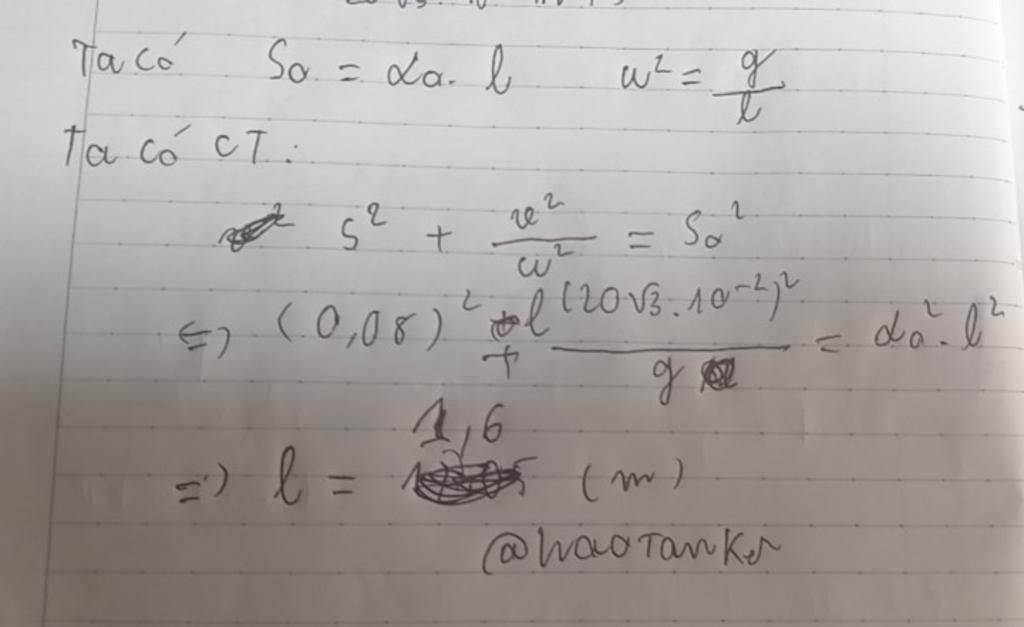 Ta có S₀ = α₀. l ω² = g/l
Ta có CT:
s² + v²/ω² = S₀²
⇔ (0,08)² + l(20√3.10⁻²)²/g = α₀². l²
⇒ l = 1,6 (m)
@haoTanker